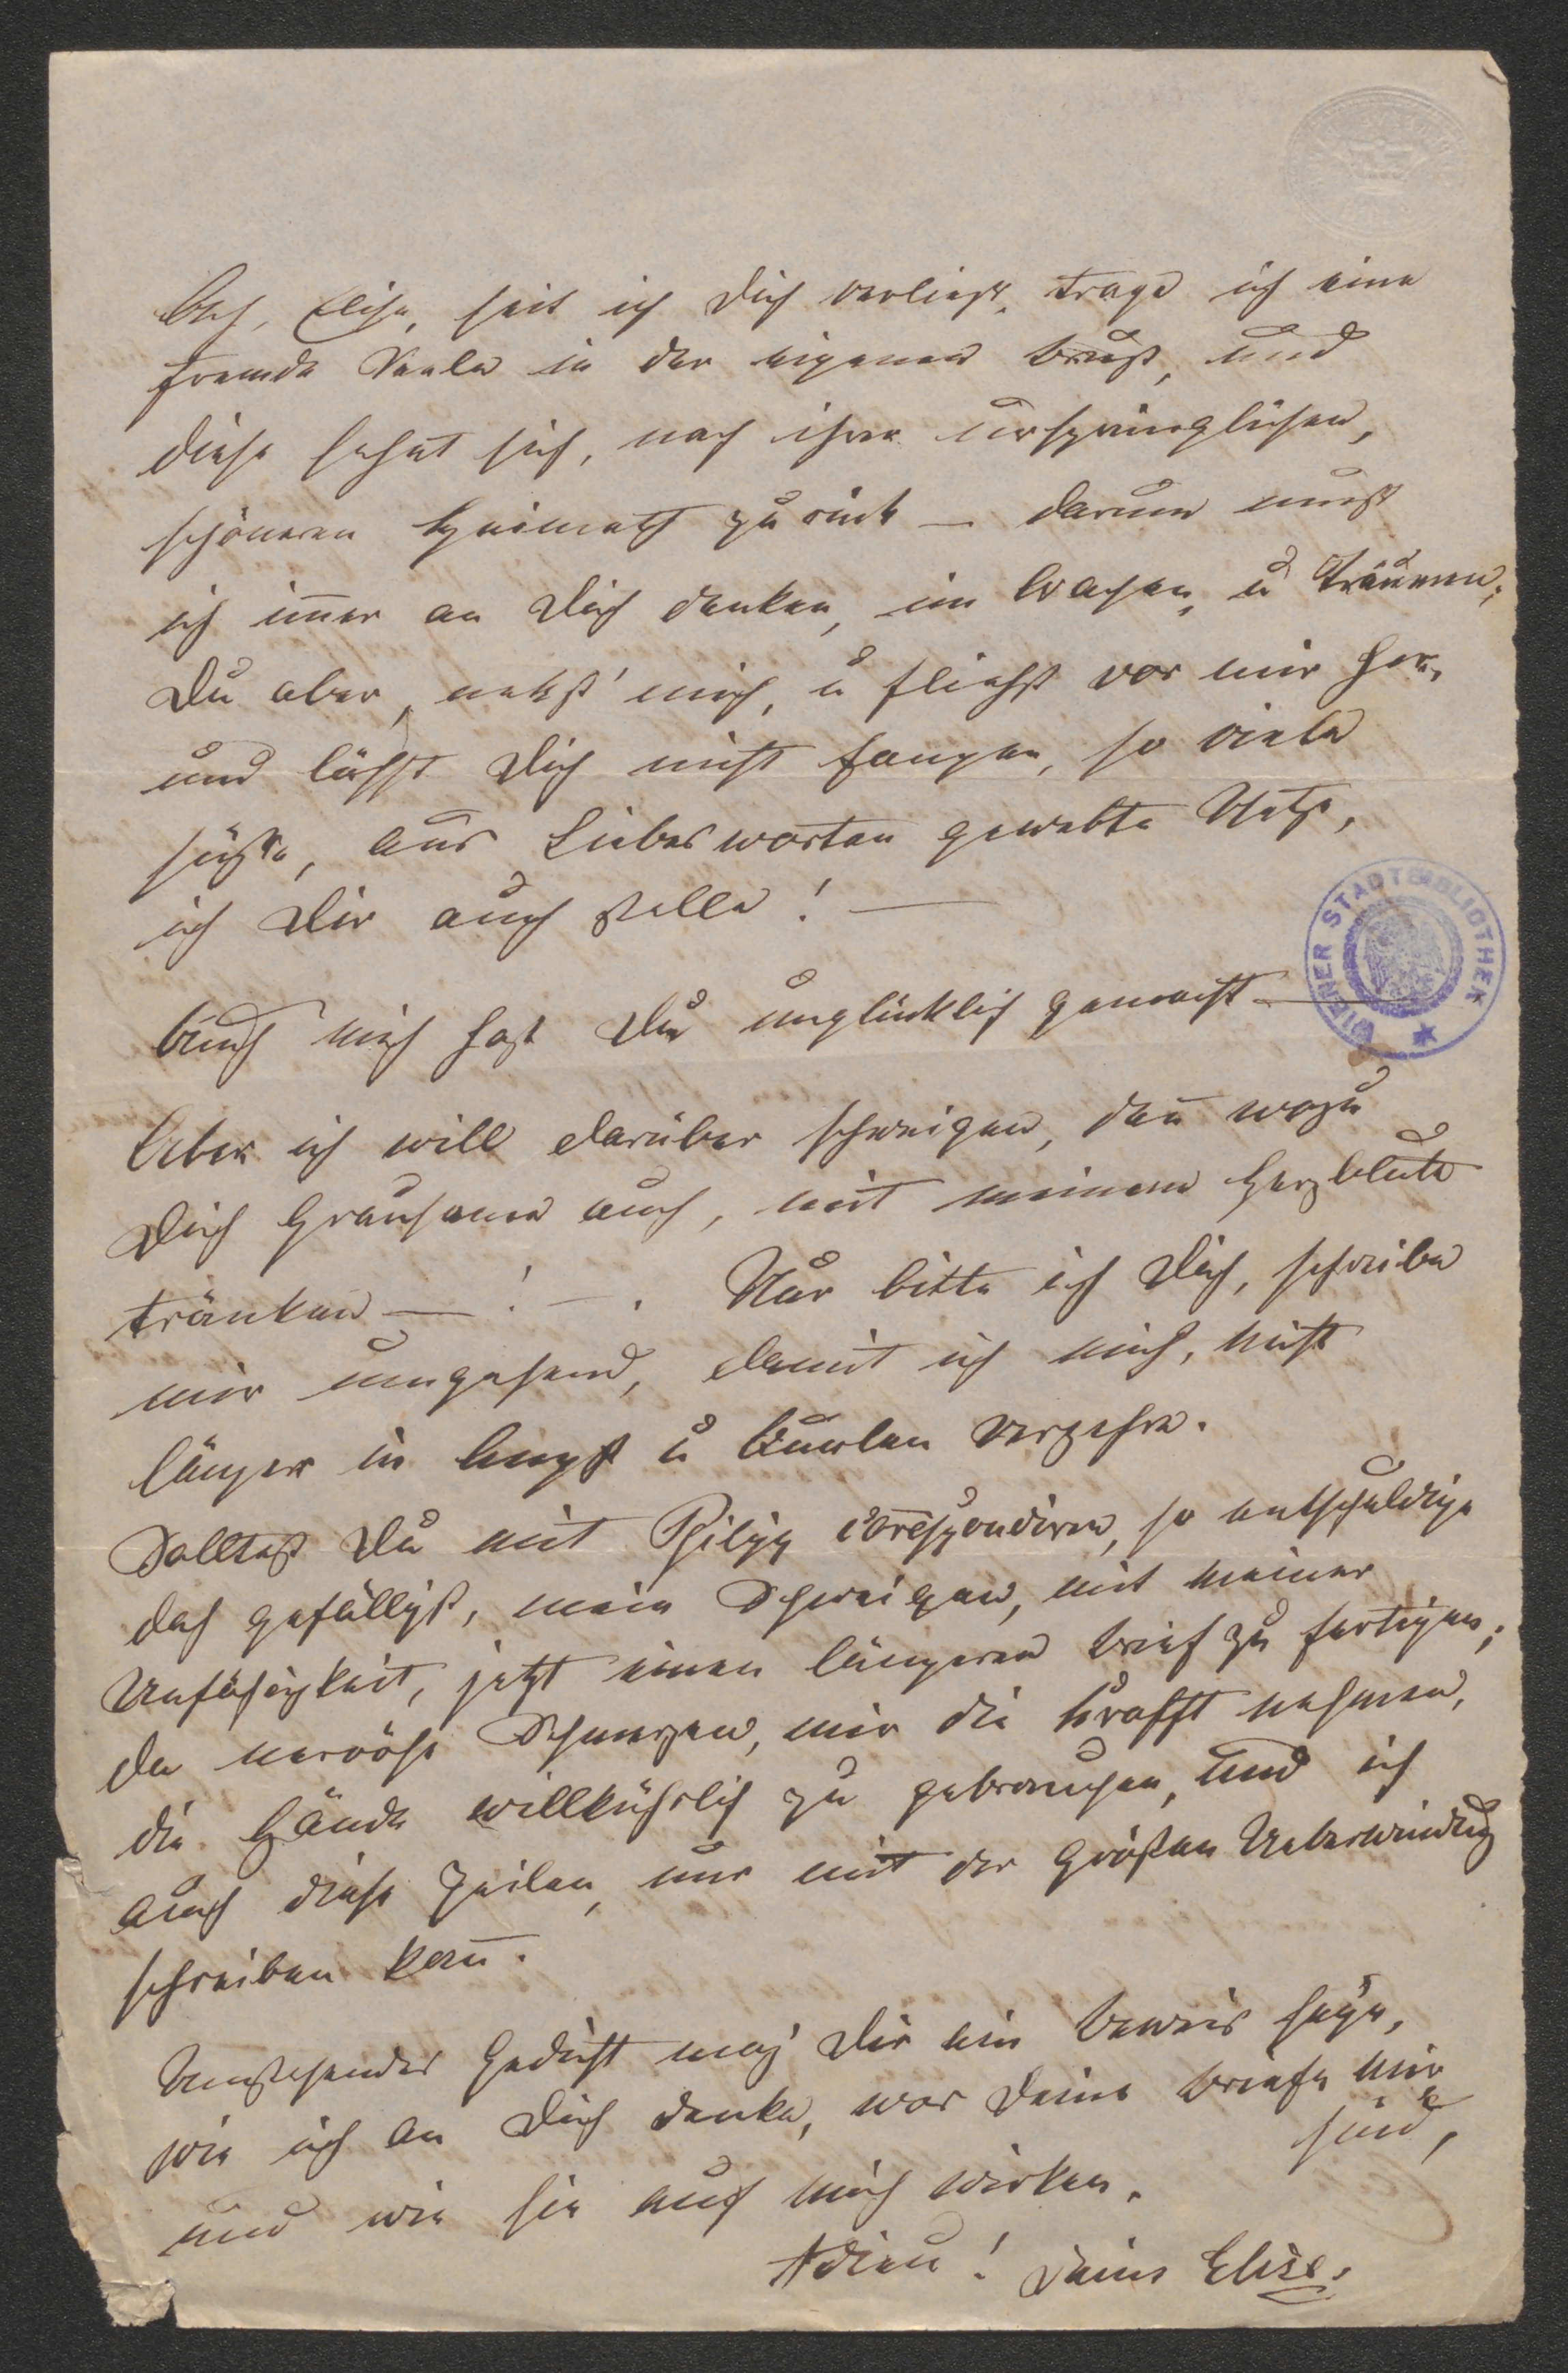 Ach, Elise, seit ich Dich verließ, trage ich eine
fremde Seele in der eigenen Brust, und
diese sehnt sich, nach ihrer ursprünglichen,
schöneren Heimath zurück — darum muß
ich im̅er an Dich denken, im Wachen, u Träumen,
Du aber, nekst' mich, u fliehst vor mir her,
und läßt Dich nicht fangen, so viele
süße, aus Liebesworten gewebte Netze,
ich Dir auch stelle! —
Auch mich hast Du unglücklich gemacht —
Aber ich will darüber schweigen, den̅ wozu
Dich Grausame auch, mit meinem Herzblute
tränken — ! —. Nur bitte ich Dich, schreibe
mir umgehend, damit ich mich, nicht
länger in Angst u Qualen verzehre.
Solltest Du mit Philipp correspondiren, so entschuldige
doch gefälligst, mein Schweigen, mit meiner
Unfähigkeit, jetzt einen längeren Brief zu fertigen;
da nervöse Schmerzen, mir die Krafft nehmen,
die Hände willkührlich zu gebrauchen, und ich
auch diese Zeilen, nur mit der größten Ueberwindung
schreiben kan̅.
Umstehendes Gedicht mag Dir ein Beweis seyn,
wie ich an Dich denke, was Deine Briefe mir
sind,
und wie sie auf mich wirken.
Adieu! Deine Elise.
WIENER STADTBIBLIOTHEK